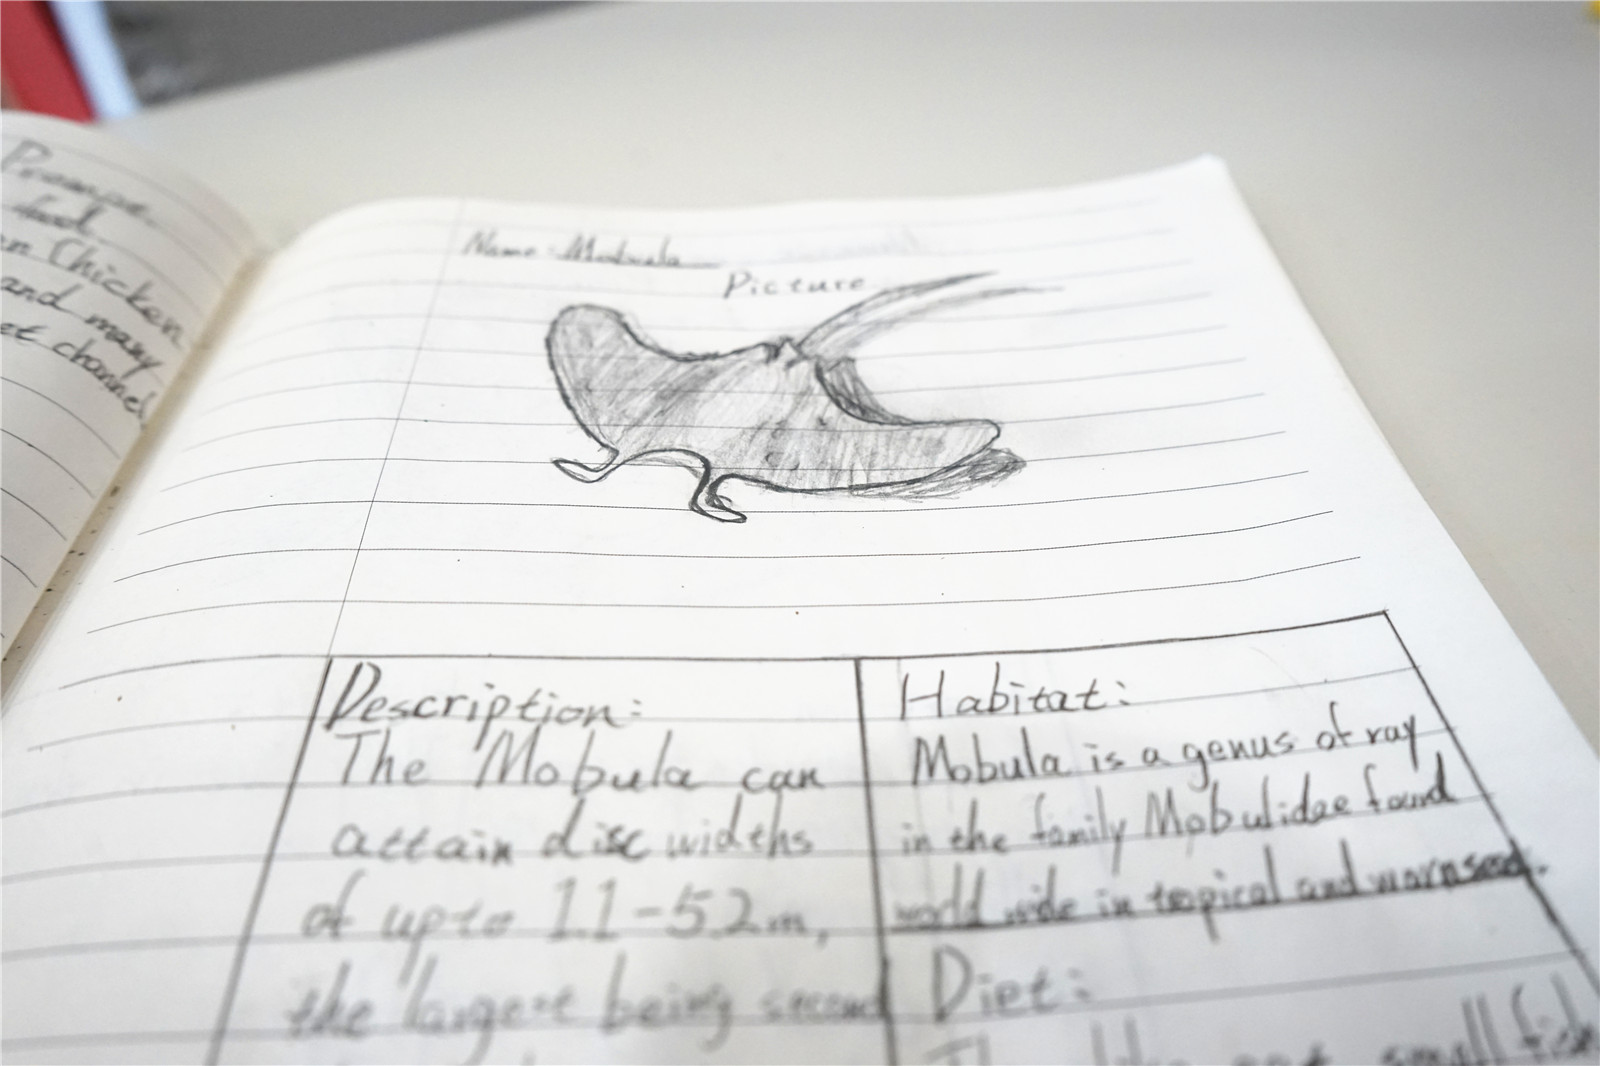 food.
Chicken
and many
channel
Name: Mobula
Picture
Description:
The Mobula can
attain disc widths
of up to 1.1-5.2m,
the largest being second
Habitat:
Mobula is a genus of ray
in the family Mobulidae found
world wide in tropical and warm seas.
Diet:
small fish